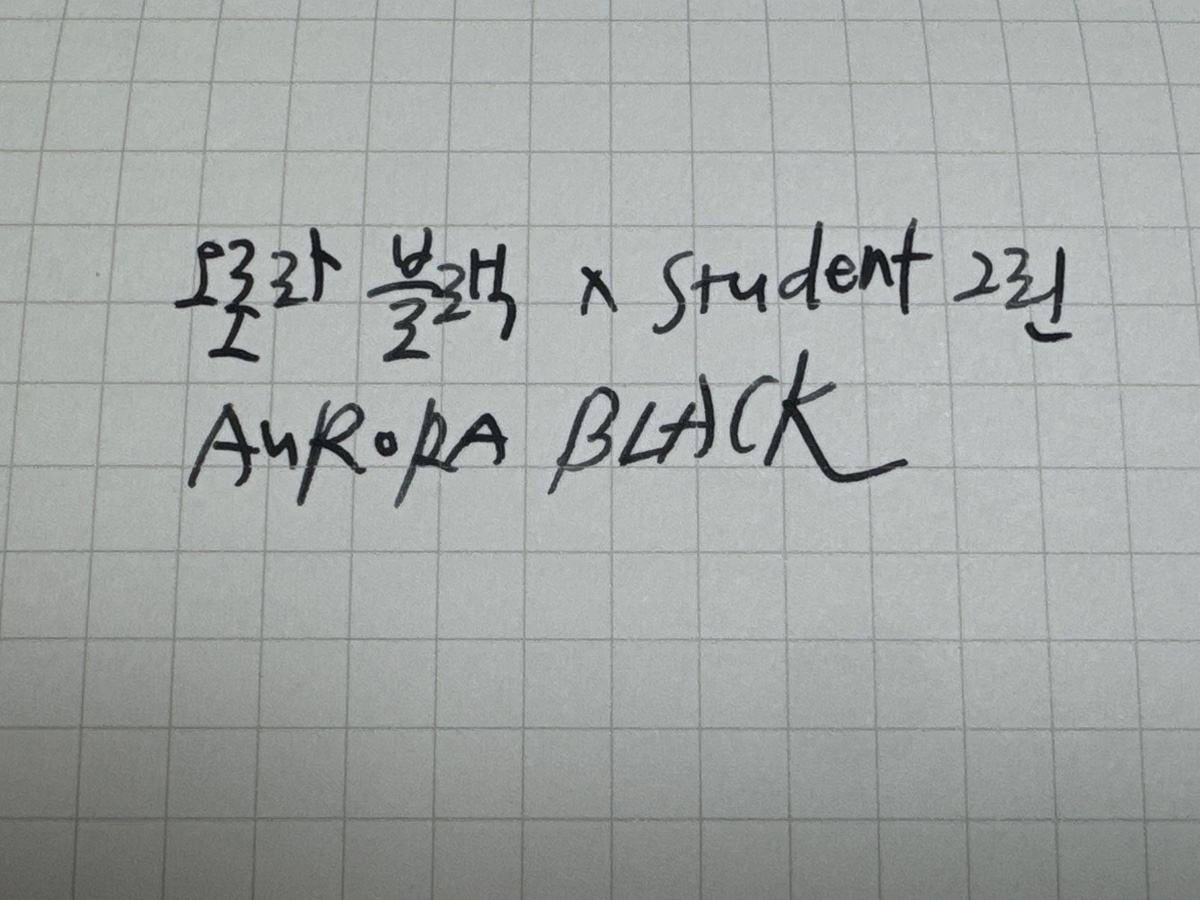 오로라 블랙 x Student 그린
AURORA BLACK